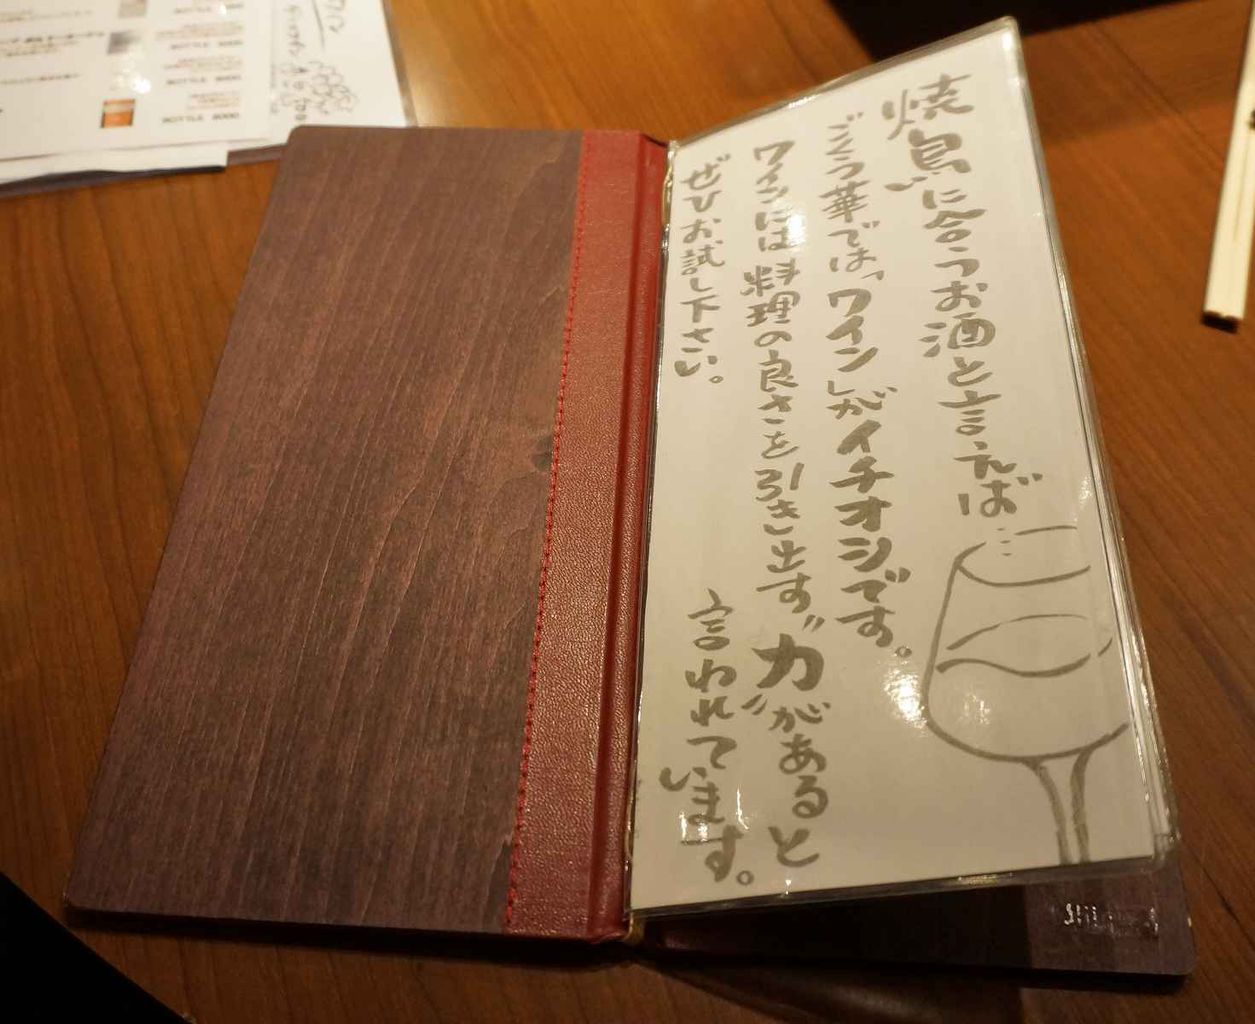 焼鳥に合うお酒と言えば…
ごくう華では、「ワイン」がイチオシです。
ワインには料理の良さを引き出す"力"があると
言われています。
ぜひお試し下さい。
BOTTLE
BOTTLE
BOTTLE